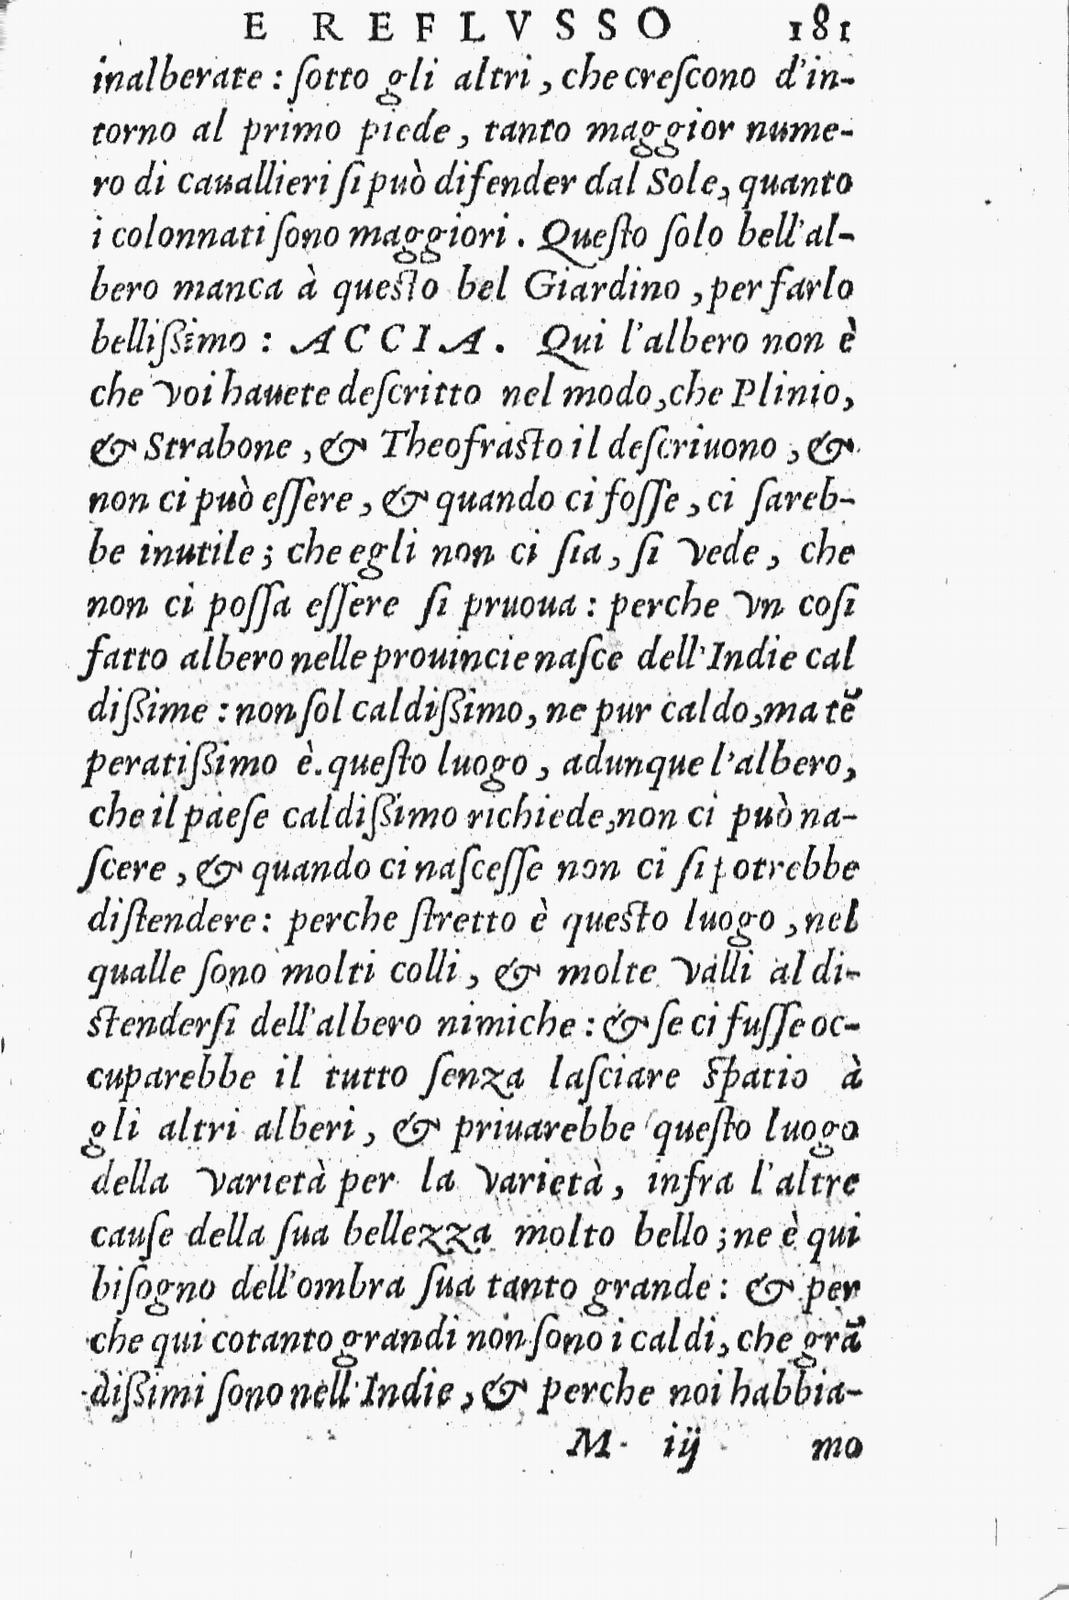 E REFLVSSO 181
inalberate : ſotto gli altri , che creſcono d'in-
torno al primo piede , tanto maggior nume-
ro di cauallieri ſi può difender dal Sole, quanto
i colonnati ſono maggiori . Queſto ſolo bell'al-
bero manca à queſto bel Giardino , per farlo
belliſſimo : ACCIA. Qui l'albero non è
che voi hauete deſcritto nel modo, che Plinio,
& Strabone , & Theofraſto il deſcriuono , &
non ci può eſſere , & quando ci foſſe , ci ſareb-
be inutile ; che egli non ci ſia , ſi vede , che
non ci poſſa eſſere ſi pruoua : perche vn coſi
fatto albero nelle prouincie naſce dell'Indie cal
diſſime : non ſol caldiſſimo, ne pur caldo, ma tẽ
peratiſſimo è. queſto luogo , adunque l'albero,
che il paeſe caldiſſimo richiede, non ci può na-
ſcere , & quando ci naſceſſe non ci ſi potrebbe
diſtendere : perche ſtretto è queſto luogo , nel
qualle ſono molti colli , & molte valli al di-
ſtenderſi dell'albero nimiche : & ſe ci fuſſe oc-
cuparebbe il tutto ſenza laſciare ſpatio à
gli altri alberi , & priuarebbe queſto luogo
della varietà per la varietà , infra l'altre
cauſe della ſua bellezza molto bello ; ne è qui
biſogno dell'ombra ſua tanto grande : & per
che qui cotanto grandi non ſono i caldi, che grã
diſſimi ſono nell'Indie , & perche noi habbia-
M iij mo